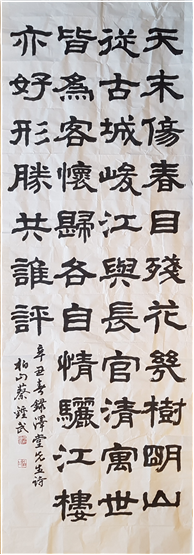 天末傷春目殘花幾樹明山
從古城峻江與長官清寓世
皆爲客懷歸各自情驪江樓
亦好形勝共誰評
辛丑春錄澤堂先生詩
柏山蔡鍾武